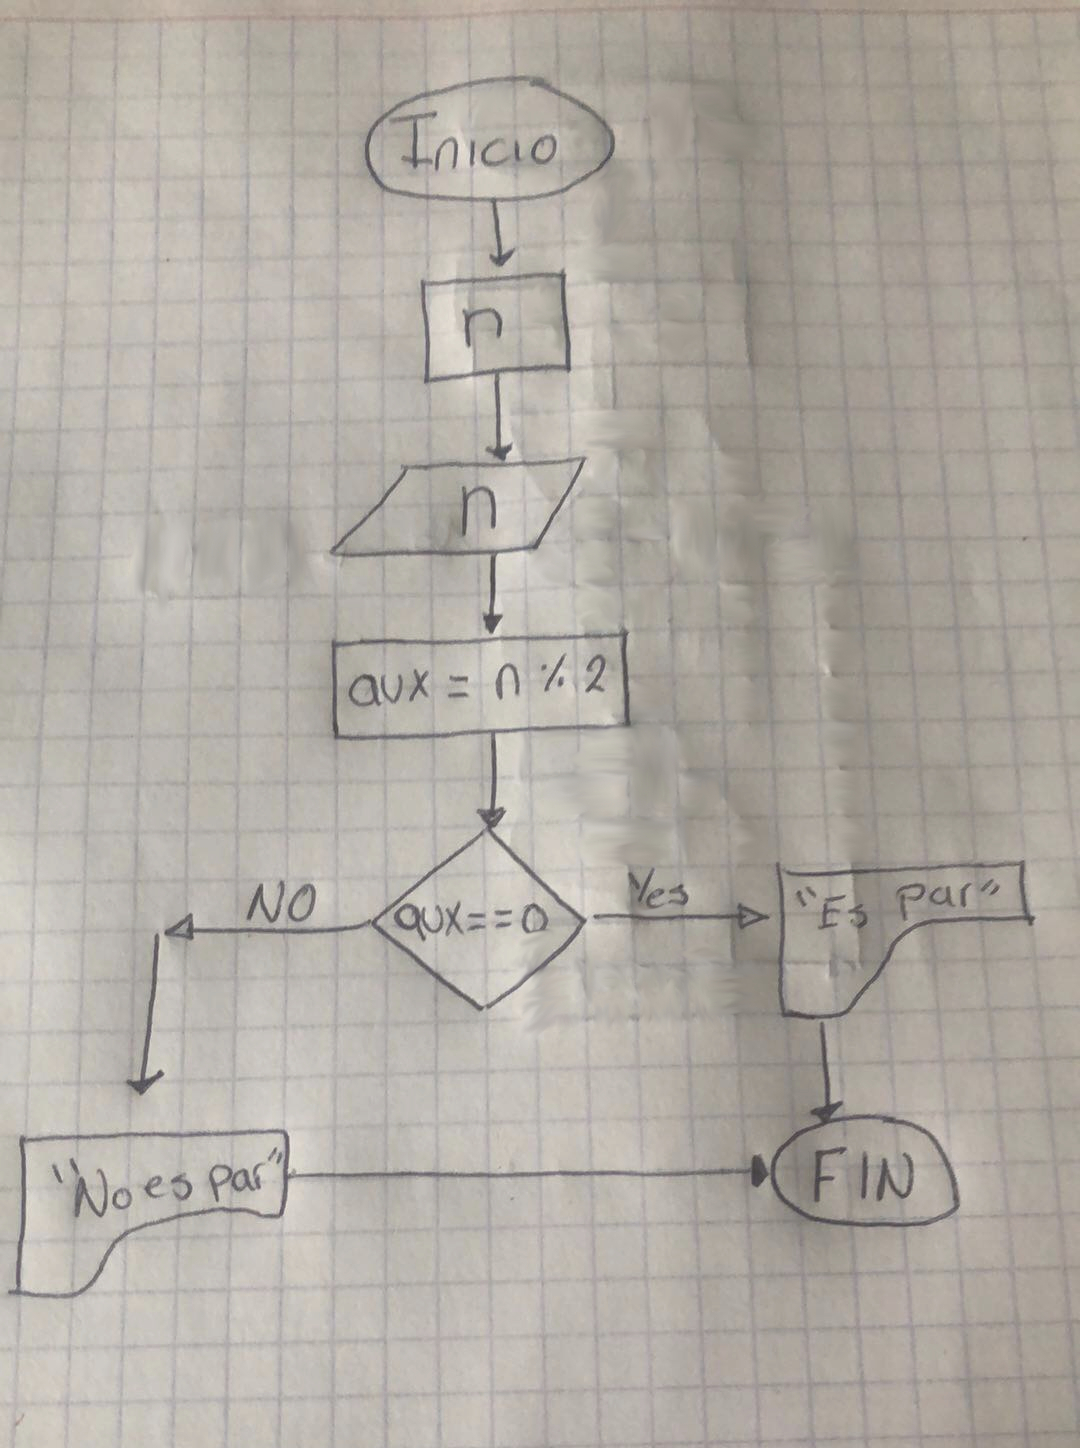 Inicio
n
n
aux = n % 2
aux==0
NO
Yes
"Es par"
"No es par"
FIN